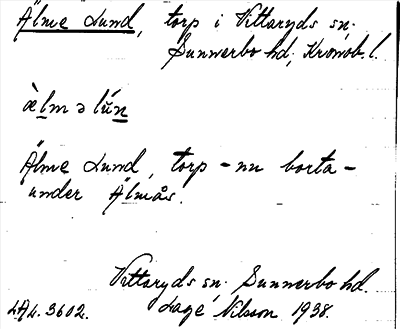 Älme Lund, torp i Vittaryds sn.
Sunnerbo hd, Kronob. l.
æ̀lm ə lún
Älme Lund, torp – nu borta –
under Älmås.
Vittaryds sn. Sunnerbo hd.
LAL. 3602. Lage Nilsson 1938.